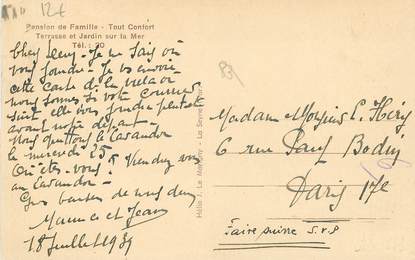 12€
Pension de Famille - Tout Confort
Terrasse et Jardin sur la Mer
Tél. : 20
Chers Leny - Je ne sais où
vous joindre - Je vous envoie
cette carte de la
nous sommes si votre courrier
suit elle vous joindra peut-être
avant notre départ -
Nous quittons le Lavandou
le mercredi 25
Où êtes-vous ? Viendrez vous
au Lavandou -
Gros baisers de nous deux
Maurice et Jeanne
18 Juillet 1939
Hélio J. Le Marigny - La Seyne (Var)
Madame Monsieur L. Héry
6 rue Paul Bodin
Paris 17e
Faire suivre S.V.P